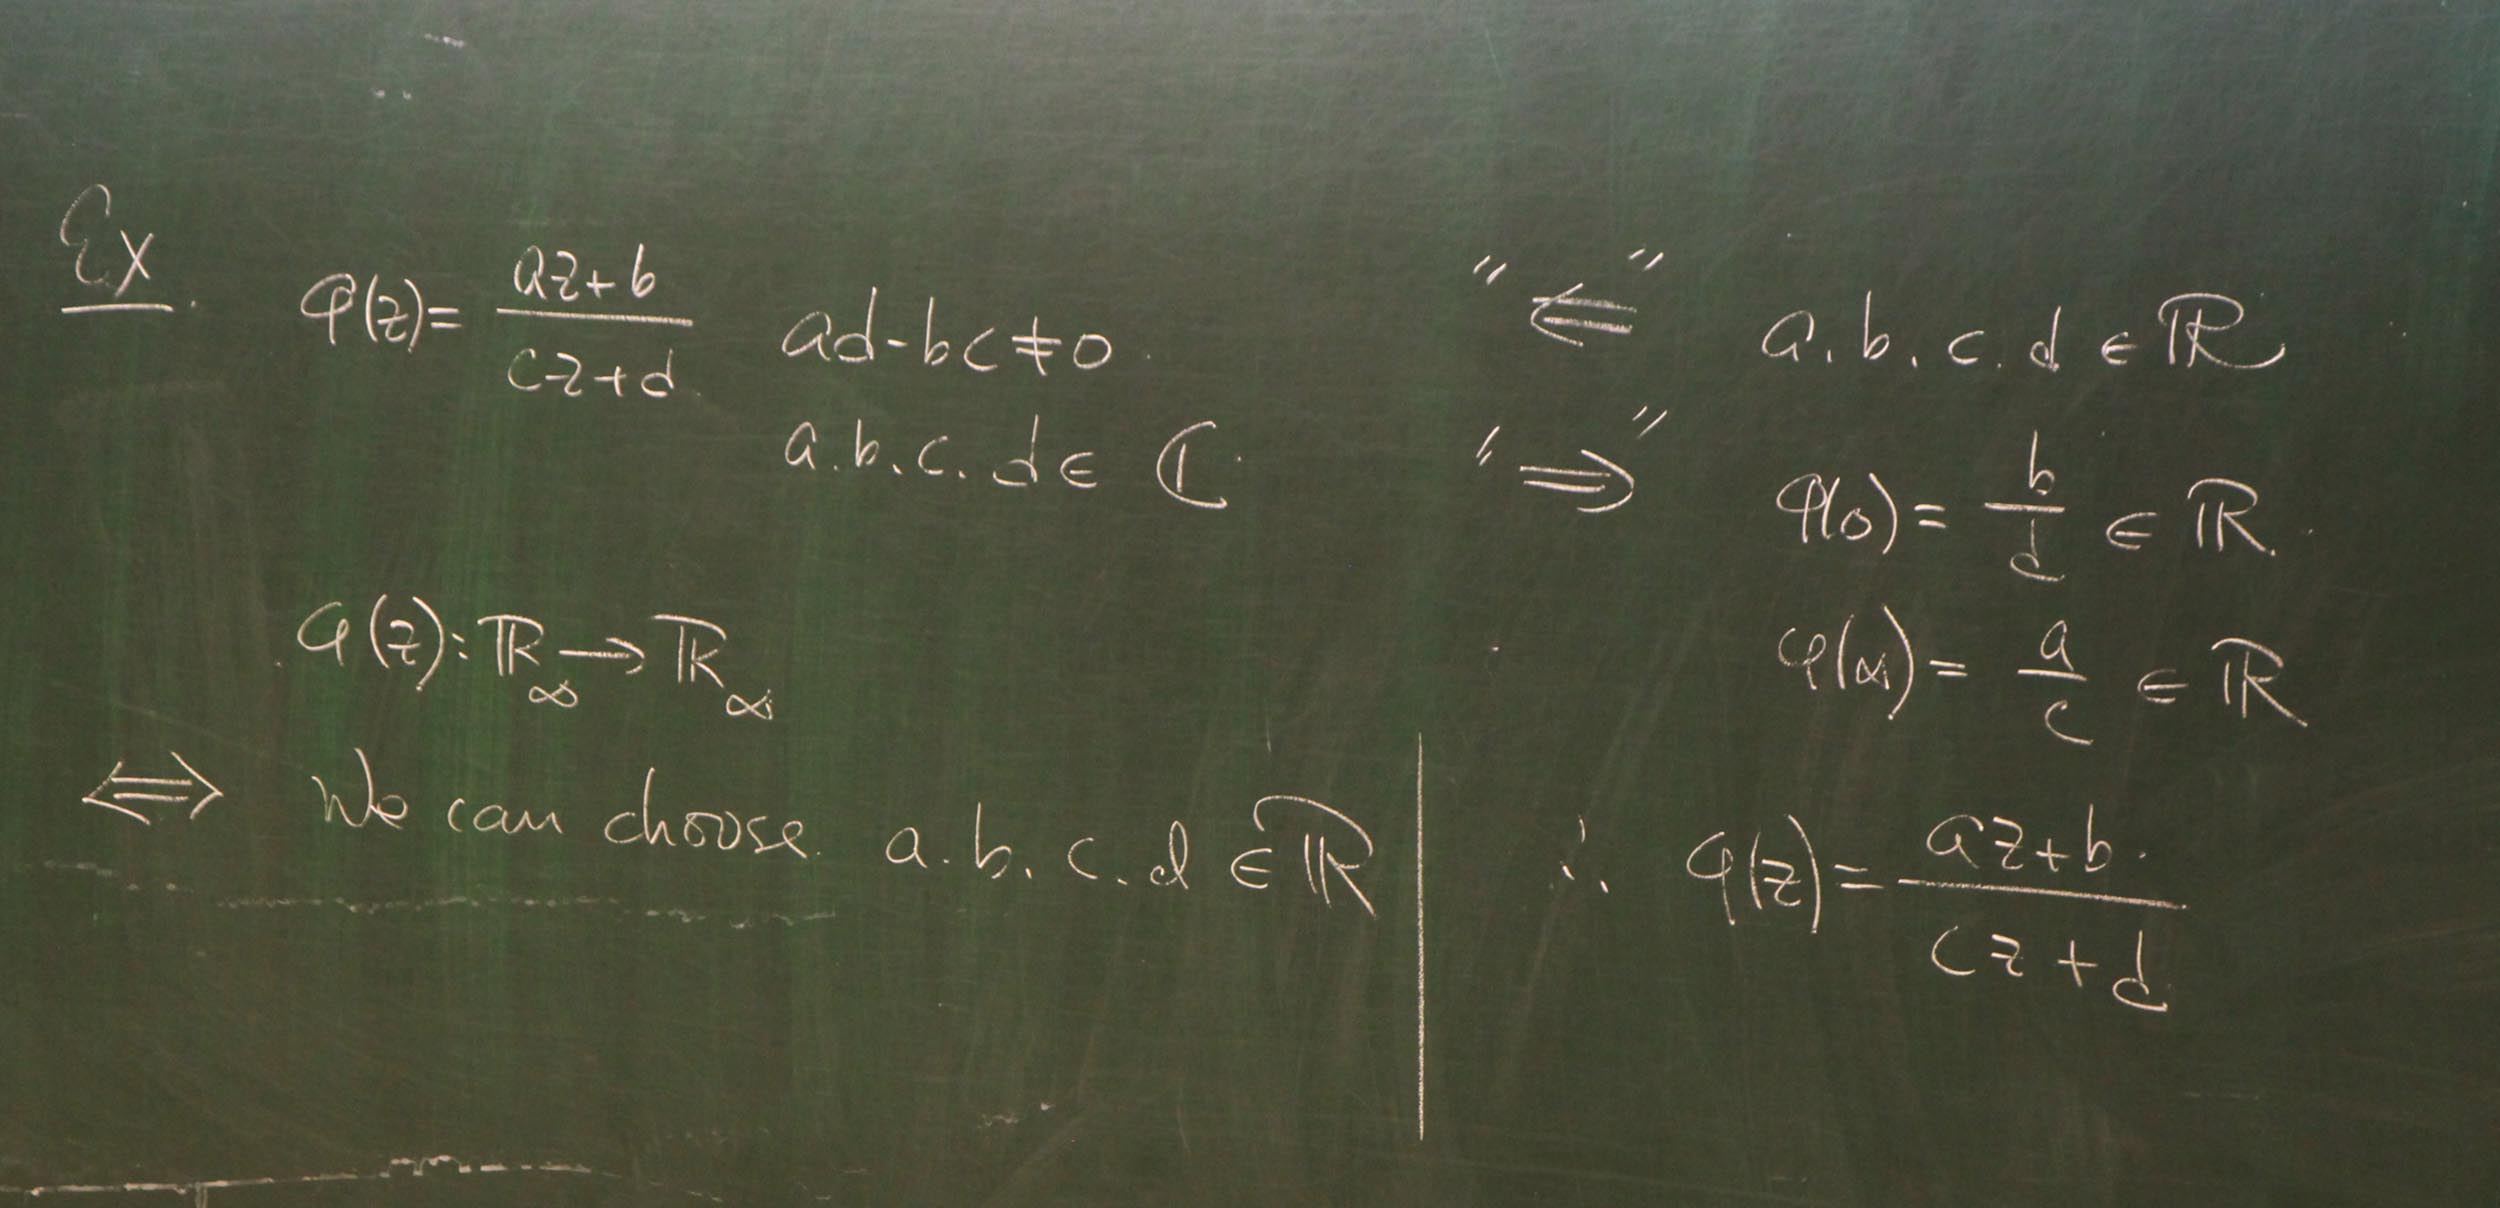 Ex. φ(z) = \frac{az+b}{cz+d} ad-bc≠0.
a.b.c.d ∈ ℂ.
φ(z): ℝ_∞ → ℝ_∞
⟺ We can choose a.b.c.d ∈ ℝ
"⟸" a.b.c.d ∈ ℝ
"⟹" φ(0) = \frac{b}{d} ∈ ℝ.
φ(∞) = \frac{a}{c} ∈ ℝ
∴ φ(z) = \frac{az+b}{cz+d}